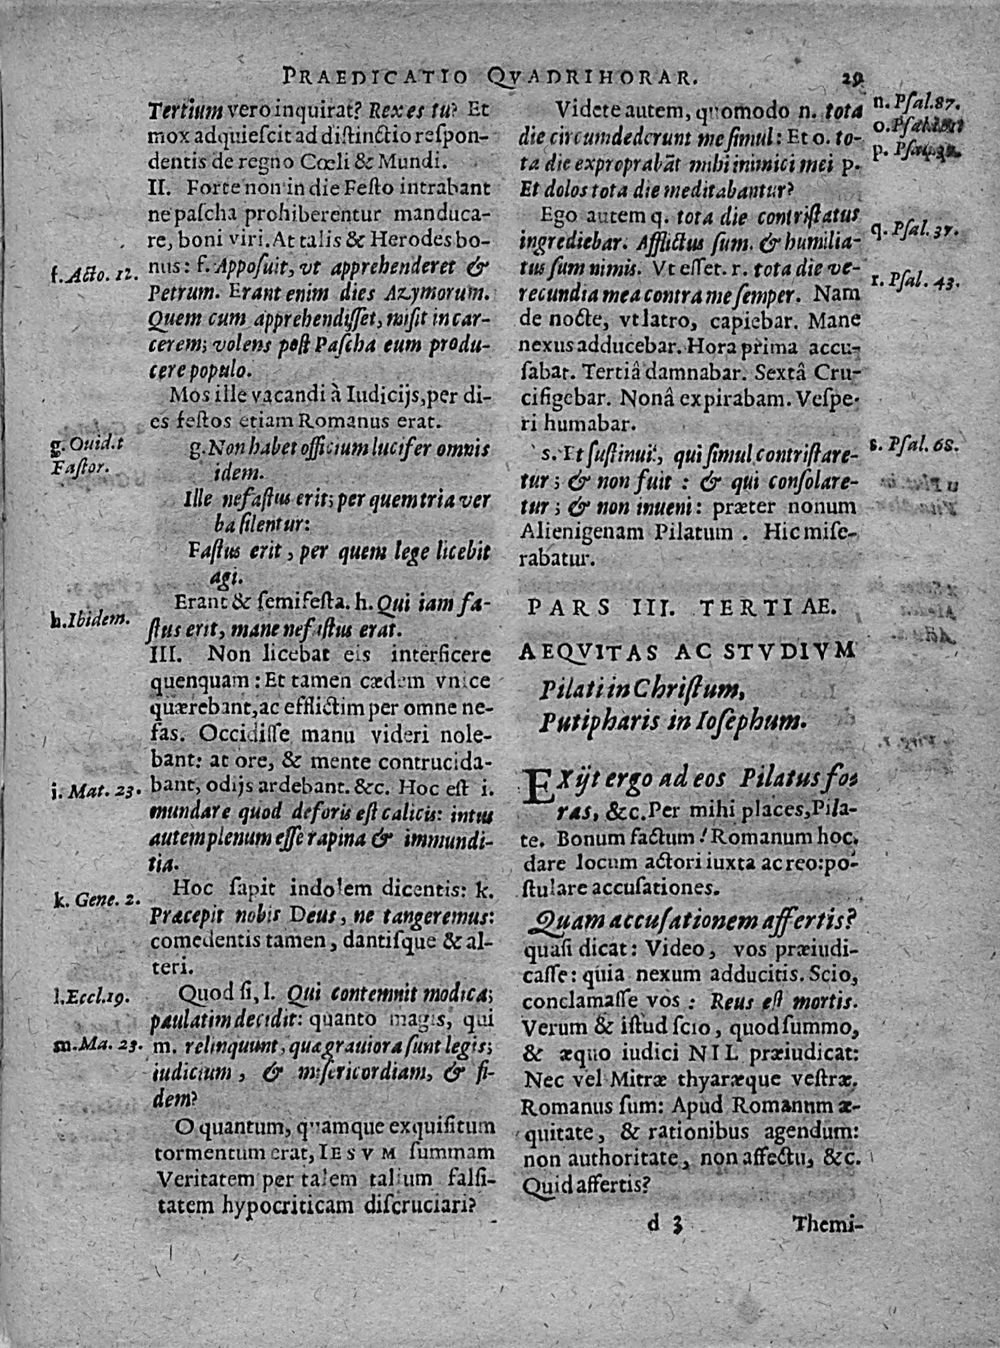 PRAEDICATIO QVADRIHORAR. 29
Tertium vero inquirat? Rex es tu? Et
mox adquiescit ad distinctio respon-
dentis de regno Cœli & Mundi.
II. Forte non in die Festo intrabant
ne pascha prohiberentur manduca-
re, boni viri. At talis & Herodes bo-
f. Acto. 12.
nus: f. Apposuit, vt apprehenderet &
Petrum. Erant enim dies Azymorum.
Quem cum apprehendisset, misit in car-
cerem; volens post Pascha eum produ-
cere populo.
Mos ille vacandi à Iudicijs, per di-
es festos etiam Romanus erat.
g. Ouid. t
Fastor.
g. Non habet officium lucifer omnis
idem.
Ille nefastus erit; per quem tria ver
ba silentur:
Fastus erit, per quem lege licebit
agi.
h. Ibidem.
Erant & semifesta. h. Qui iam fa-
stus erit, mane nefastus erat.
III. Non licebat eis interficere
quenquam: Et tamen cædem vnice
quærebant, ac efflictim per omne ne-
fas. Occidisse manu videri nole-
bant: at ore, & mente contrucida-
i. Mat. 23.
bant, odijs ardebant. &c. Hoc est i.
mundare quod deforis est calicis: intus
autem plenum esse rapina & immundi-
tia.
k. Gene. 2.
Hoc sapit indolem dicentis: k.
Præcepit nobis Deus, ne tangeremus:
comedentis tamen, dantisque & al-
teri.
l. Eccl. 19.
Quod si, l. Qui contemnit modica;
paulatim decidit: quanto magis, qui
m. Ma. 23.
m. relinquunt, quæ grauiora sunt legis;
iudicium, & misericordiam, & fi-
dem?
O quantum, quamque exquisitum
tormentum erat, IESVM summam
Veritatem per talem talium falsi-
tatem hypocriticam discruciari?
n. Psal. 87.
Videte autem, quomodo n. tota
die circumdederunt me simul: Et o. to-
ta die exproprabāt mihi inimici mei p.
Et dolos tota die meditabantur?
q. Psal. 37.
Ego autem q. tota die contristatus
ingrediebar. Afflictus sum. & humilia-
r. Psal. 43.
tus sum nimis. Vt esset. r. tota die ve-
recundia mea contra me semper. Nam
de nocte, vt latro, capiebar. Mane
nexus adducebar. Hora prima accu-
sabar. Tertiâ damnabar. Sextâ Cru-
cifigebar. Nonâ expirabam. Vespe-
ri humabar.
s. Psal. 68.
s. Et sustinui, qui simul contristare-
tur; & non fuit: & qui consolare-
tur; & non inueni: præter nonum
Alienigenam Pilatum. Hic mise-
rabatur.
PARS III. TERTIAE.
AEQVITAS AC STVDIVM
Pilati in Christum,
Putipharis in Iosephum.
EXijt ergo ad eos Pilatus fo-
ras, &c. Per mihi places, Pila-
te. Bonum factum! Romanum hoc,
dare locum actori iuxta ac reo: po-
stulare accusationes.
Quam accusationem affertis?
quasi dicat: Video, vos præiudi-
casse: quia nexum adducitis. Scio,
conclamasse vos: Reus est mortis.
Verum & istud scio, quod summo,
& æquo iudici NIL præiudicat:
Nec vel Mitræ thyaræque vestræ.
Romanus sum: Apud Romanum æ-
quitate, & rationibus agendum:
non authoritate, non affectu, &c.
Quid affertis?
d 3 Themi-